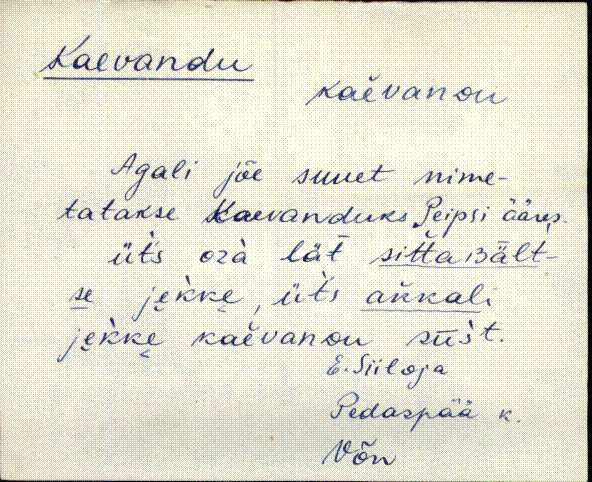 Kaevandu
kaĕvanou
Agali jõe suuet nime-
tatakse Kaevanduks Peipsi ääres.
üt̀s ozà lät̄ sit̆ta Bält-
se jek̀ke̬, üt̀s ak̆kali
jek̀ke̬ kaĕvanou süs̀t.
E. Siiloja
Pedaspää k.
Võn